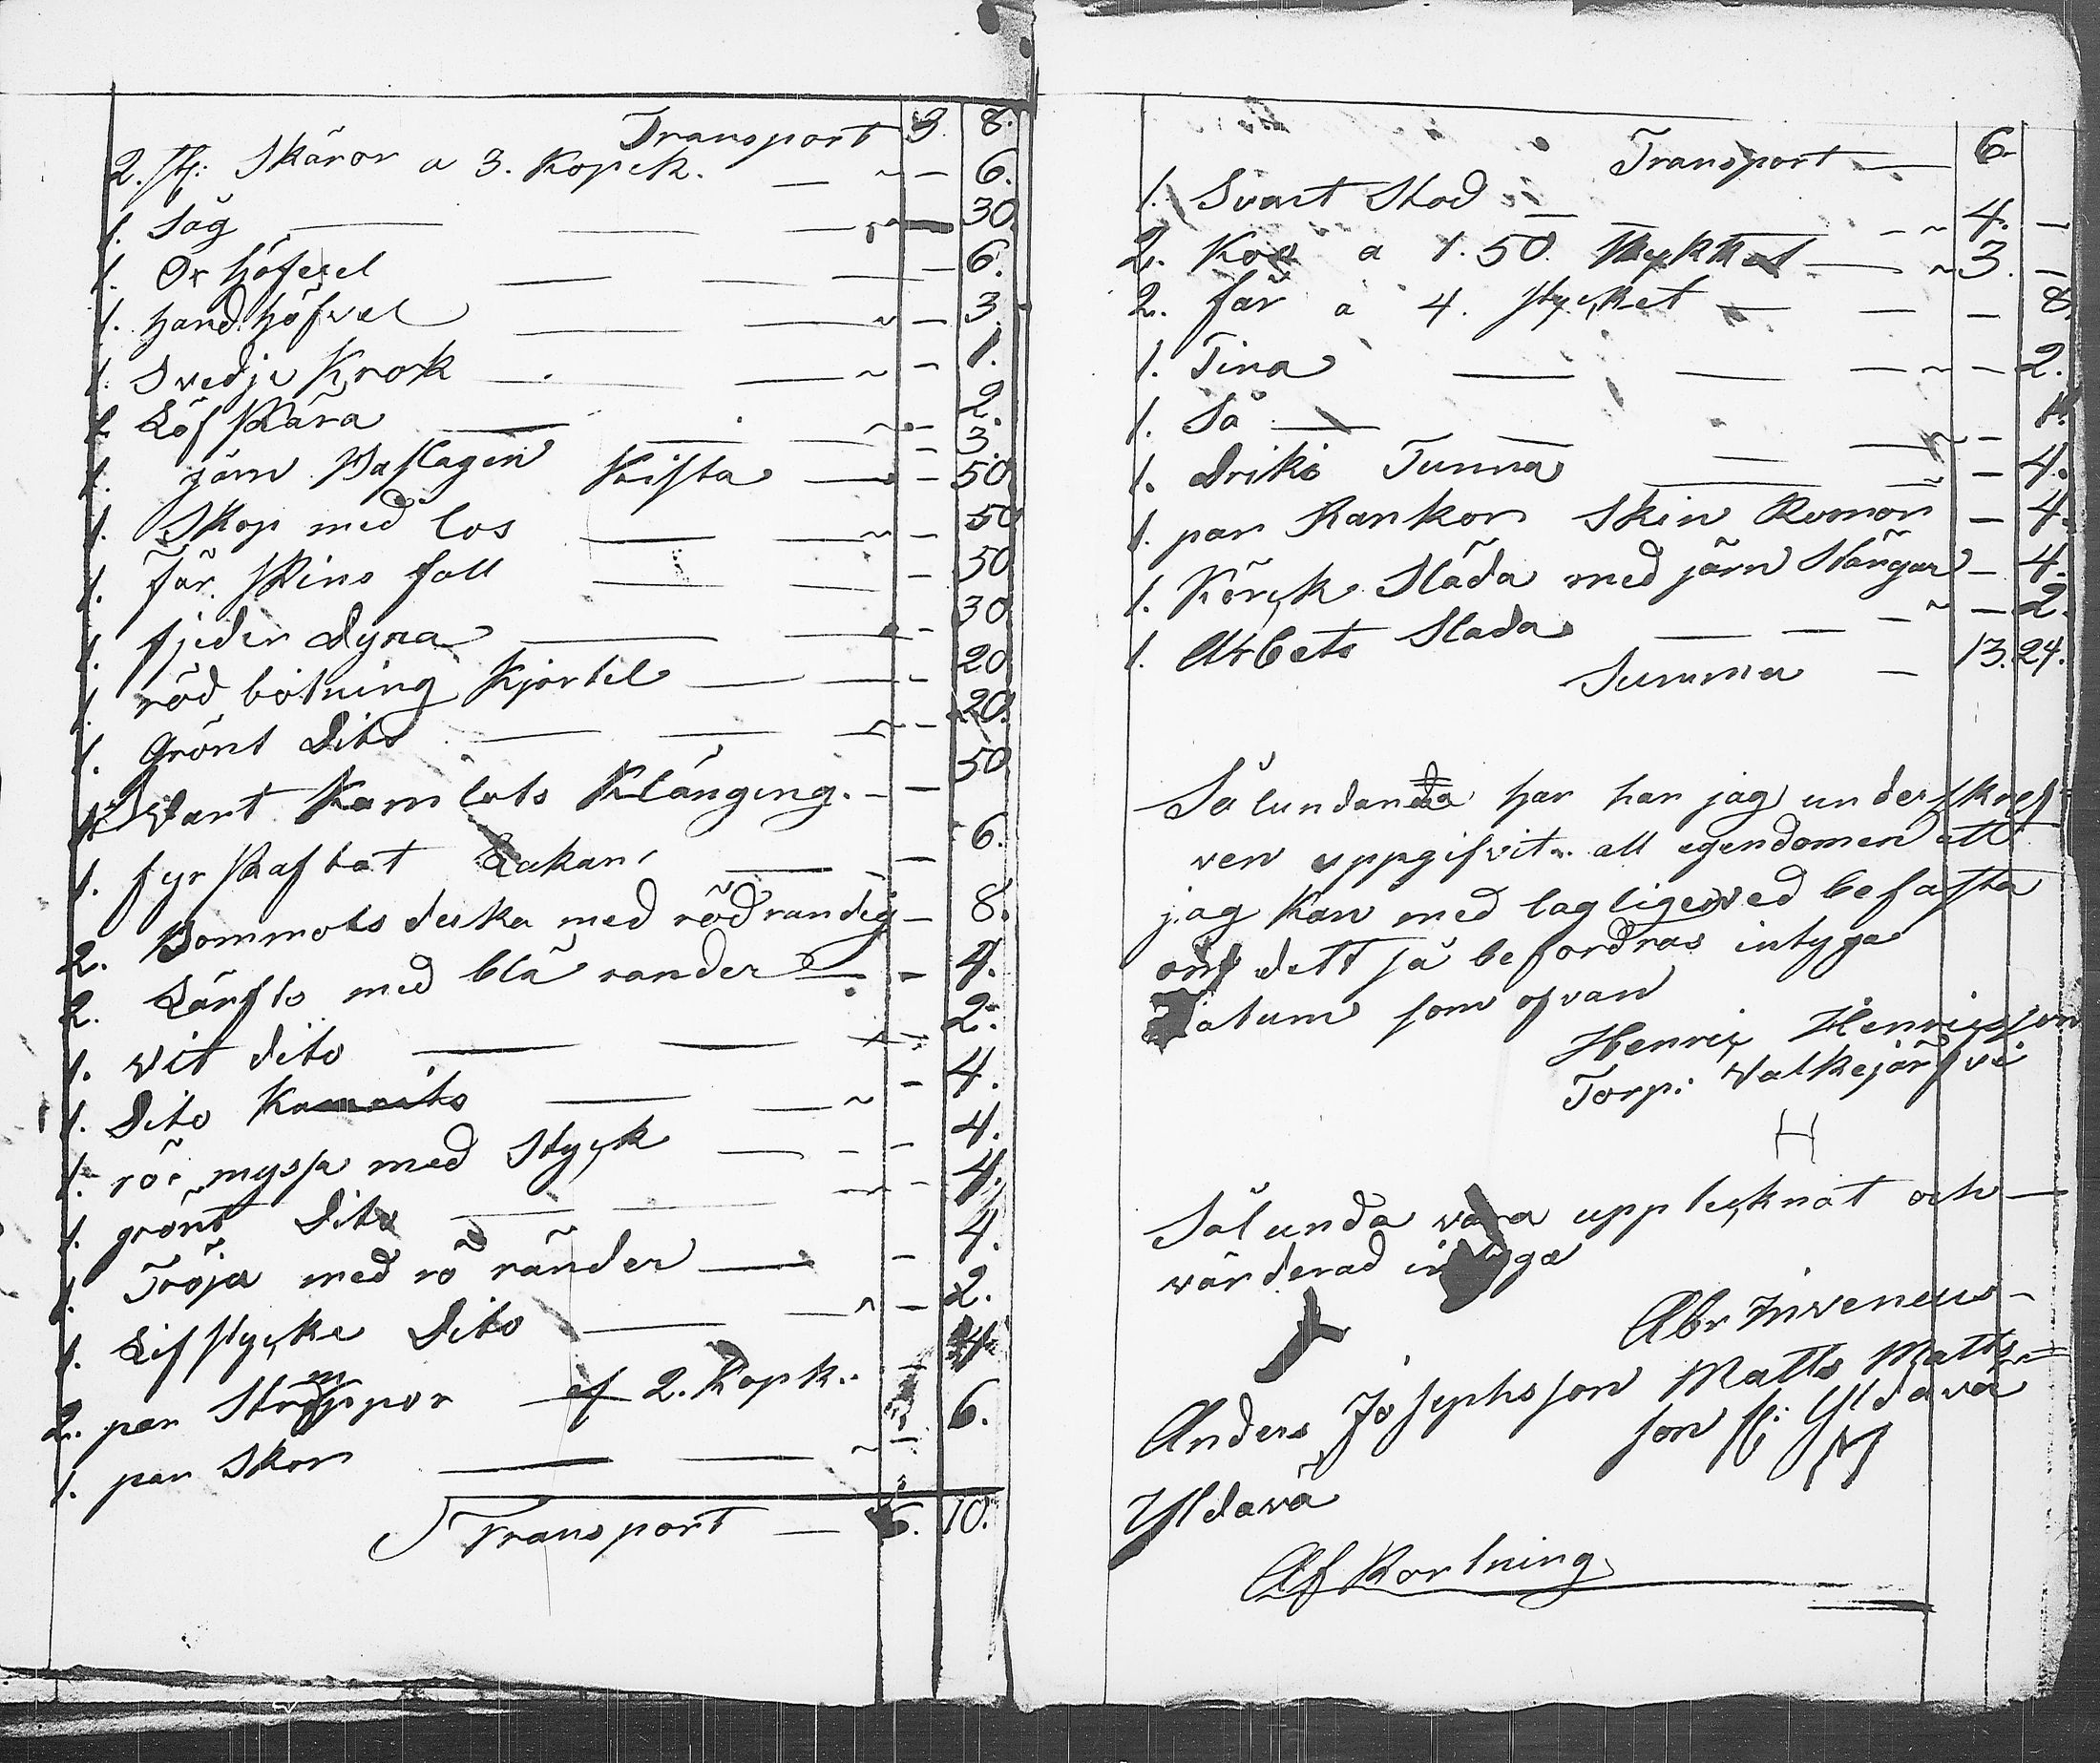 Transport 3. 8.
2. st: Skäror a 3. Kopek. — ~ — 6.
1. Såg — — — 30.
1. Ox höfvel — — — 6.
1. hand höfvel — — ~ — 3.
1. Svedje Krok — — ~ — 1.
1. Löf skära — — ~ — 2.
1. järn Baslagen Kista — — 3.50
1. Skop med los — — ~ — 50
1. Får skins fall — — — 50
1. fjeder Dyna — — 30
1. röd botning Kjortel — — 20
1. Grönt Dito — — ~ — 20.
1. Svart Kamlots Klänging. — — 50
1. fyr skaftat Lakan — — 6.
2. Bommols duka med röd randig — 8.
2. Lärfts med blå rander — — 4.
1. wit dito — — — 2.
1. Dito — — ~ — 4.
1. rö myssa med Styck — — — 4.
1. grönt Dito — — — 4.
1. Tröja med rö ränder — — 4.
1. Lifstycke Dito — — ~ — 2.
2. par Strumppor af 2. Kopk. — 4
1. par Skor — — ~ — 6.
Transport — 6. 10.
Transport — 6.
1. Svart Stod — — ~ 4. —
2. Kor a 1.50. stykket — ~ 3. —
2. får a 4. stycket — — — 8.
1. Tina — — — ~ — 2.
1. Så — — ~ —
1. Driks Tunna — — ~ — 4.
1. par Rankor Skin Romor — 4.
1. Körck Släda med järn Stängar — 4.
1. Arbets Slada — — ~ — 2.
Summa — 13.24.
Sålundanda har han jag underskref-
ven uppgifvit all egendomen ett
jag Kan med lagliged ed befasta
om dett så befordras intyga
Datum som ofvan
Henric Henricsson
Torp: Walkejärfvi
H
Sålunda wara upptecknat och —
wärderad intyga
Abr Inveneus
Anders Josephsson Matts Matts=
son fr: Yldavä
M
Yldavä
Af Kortning